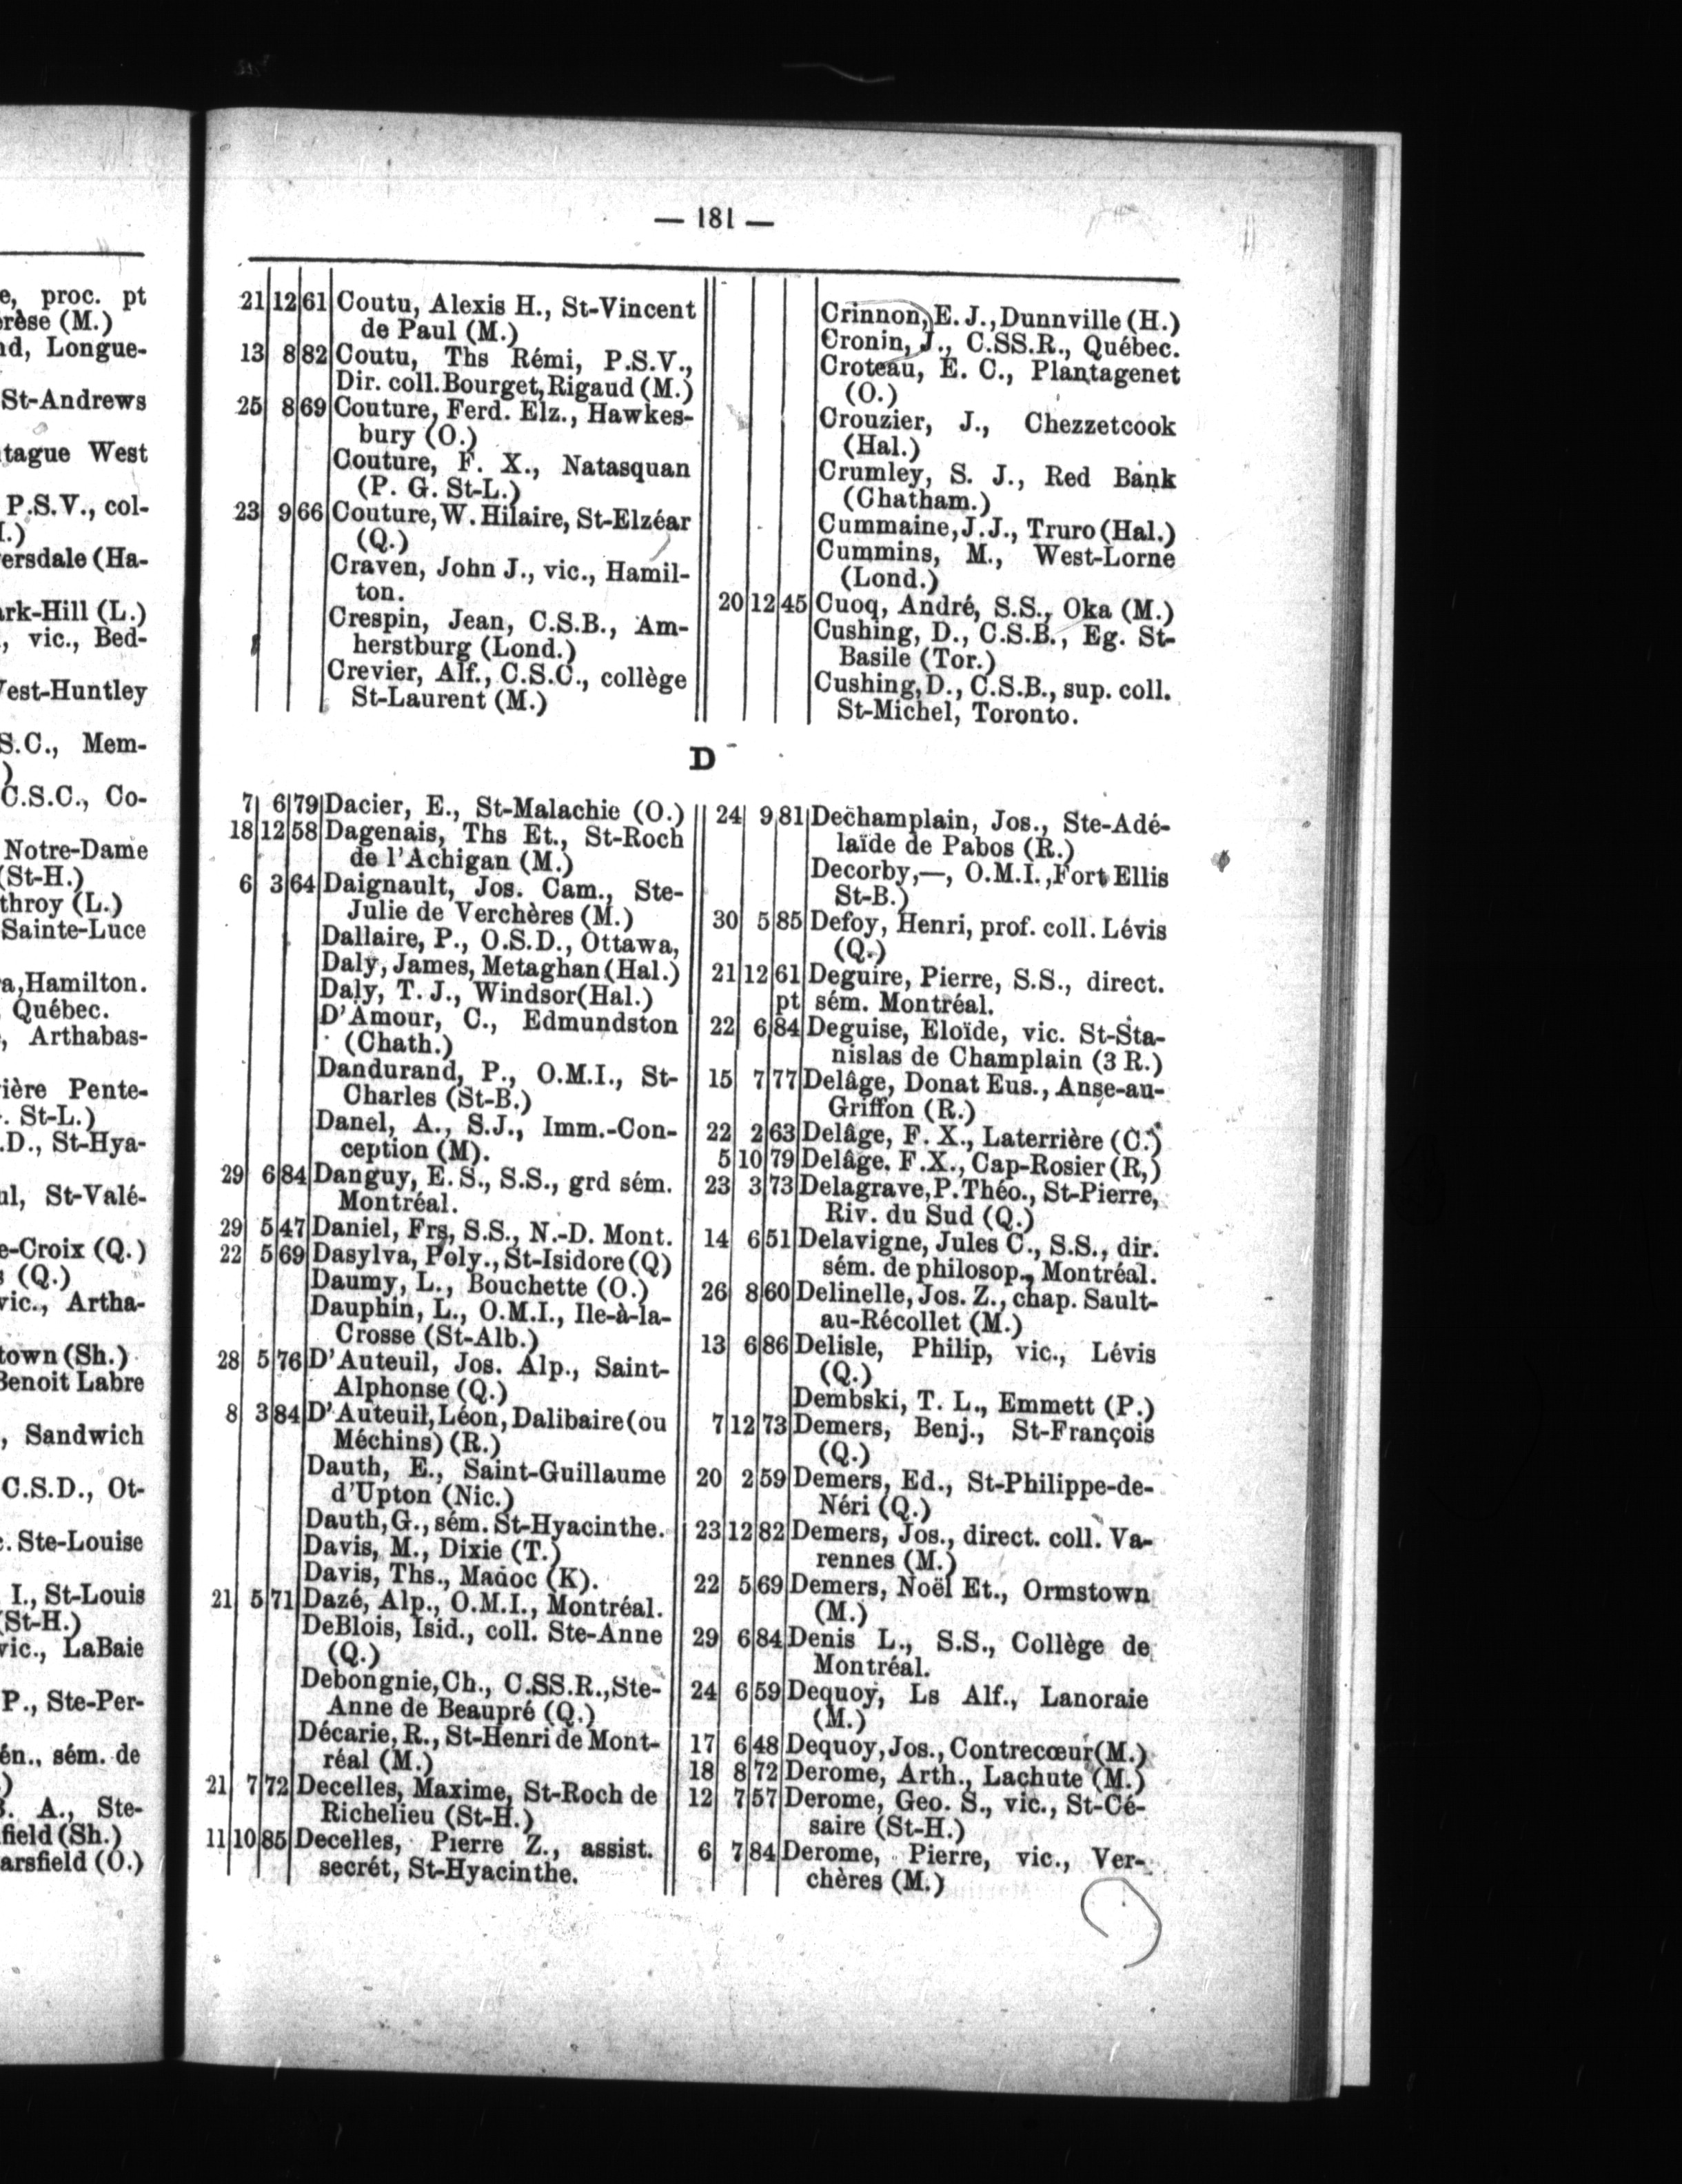 e, proc. pt
rèse (M.)
nd, Longue-
St-Andrews
tague West
P.S.V., col-
ersdale (Ha-
ark-Hill (L.)
, vic., Bed-
est-Huntley
S.C., Mem-
)
C.S.C., Co-
Notre-Dame
(St-H.)
throy (L.)
Sainte-Luce
a, Hamilton.
Québec.
, Arthabas-
ière Pente-
. St-L.)
.D., St-Hya-
ul, St-Valé-
e-Croix (Q.)
s (Q.)
vic., Artha-
town (Sh.)
Benoit Labre
, Sandwich
C.S.D., Ot-
. Ste-Louise
I., St-Louis
(St-H.)
vic., LaBaie
P., Ste-Per-
én., sém. de
)
. A., Ste-
field (Sh.)
arsfield (O.)
— 181 —
21 12 61 Coutu, Alexis H., St-Vincent
de Paul (M.)
13 8 82 Coutu, Ths Rémi, P.S.V.,
Dir. coll. Bourget, Rigaud (M.)
25 8 69 Couture, Ferd. Elz., Hawkes-
bury (O.)
Couture, F. X., Natasquan
(P. G. St-L.)
23 9 66 Couture, W. Hilaire, St-Elzéar
(Q.)
Craven, John J., vic., Hamil-
ton.
Crespin, Jean, C.S.B., Am-
herstburg (Lond.)
Crevier, Alf., C.S.C., collège
St-Laurent (M.)
Crinnon, E. J., Dunnville (H.)
Cronin, J., C.SS.R., Québec.
Croteau, E. C., Plantagenet
(O.)
Crouzier, J., Chezzetcook
(Hal.)
Crumley, S. J., Red Bank
(Chatham.)
Cummaine, J. J., Truro (Hal.)
Cummins, M., West-Lorne
(Lond.)
20 12 45 Cuoq, André, S.S., Oka (M.)
Cushing, D., C.S.B., Eg. St-
Basile (Tor.)
Cushing, D., C.S.B., sup. coll.
St-Michel, Toronto.
D
7 6 79 Dacier, E., St-Malachie (O.)
18 12 58 Dagenais, Ths Et., St-Roch
de l'Achigan (M.)
6 3 64 Daignault, Jos. Cam., Ste-
Julie de Verchères (M.)
Dallaire, P., O.S.D., Ottawa,
Daly, James, Metaghan (Hal.)
Daly, T. J., Windsor (Hal.)
D'Amour, C., Edmundston
(Chath.)
Dandurand, P., O.M.I., St-
Charles (St-B.)
Danel, A., S.J., Imm.-Con-
ception (M).
29 6 84 Danguy, E. S., S.S., grd sém.
Montréal.
29 5 47 Daniel, Frs, S.S., N.-D. Mont.
22 5 69 Dasylva, Poly., St-Isidore (Q)
Daumy, L., Bouchette (O.)
Dauphin, L., O.M.I., Ile-à-la-
Crosse (St-Alb.)
28 5 76 D'Auteuil, Jos. Alp., Saint-
Alphonse (Q.)
8 3 84 D'Auteuil, Léon, Dalibaire (ou
Méchins) (R.)
Dauth, E., Saint-Guillaume
d'Upton (Nic.)
Dauth, G., sém. St-Hyacinthe.
Davis, M., Dixie (T.)
Davis, Ths., Madoc (K).
21 5 71 Dazé, Alp., O.M.I., Montréal.
DeBlois, Isid., coll. Ste-Anne
(Q.)
Debongnie, Ch., C.SS.R., Ste-
Anne de Beaupré (Q.)
Décarie, R., St-Henri de Mont-
réal (M.)
21 7 72 Decelles, Maxime, St-Roch de
Richelieu (St-H.)
11 10 85 Decelles, Pierre Z., assist.
secrét, St-Hyacinthe.
24 9 81 Dechamplain, Jos., Ste-Adé-
laïde de Pabos (R.)
Decorby, —, O.M.I., Fort Ellis
St-B.)
30 5 85 Defoy, Henri, prof. coll. Lévis
(Q.)
21 12 61 Deguire, Pierre, S.S., direct.
pt sém. Montréal.
22 6 84 Deguise, Eloïde, vic. St-Sta-
nislas de Champlain (3 R.)
15 7 77 Delâge, Donat Eus., Anse-au-
Griffon (R.)
22 2 63 Delâge, F. X., Laterrière (C.)
5 10 79 Delâge. F.X., Cap-Rosier (R,)
23 3 73 Delagrave, P. Théo., St-Pierre,
Riv. du Sud (Q.)
14 6 51 Delavigne, Jules C., S.S., dir.
sém. de philosop., Montréal.
26 8 60 Delinelle, Jos. Z., chap. Sault-
au-Récollet (M.)
13 6 86 Delisle, Philip, vic., Lévis
(Q.)
Dembski, T. L., Emmett (P.)
7 12 73 Demers, Benj., St-François
(Q.)
20 2 59 Demers, Ed., St-Philippe-de-
Néri (Q.)
23 12 82 Demers, Jos., direct. coll. Va-
rennes (M.)
22 5 69 Demers, Noël Et., Ormstown
(M.)
29 6 84 Denis L., S.S., Collège de
Montréal.
24 6 59 Dequoy, Ls Alf., Lanoraie
(M.)
17 6 48 Dequoy, Jos., Contrecœur (M.)
18 8 72 Derome, Arth., Lachute (M.)
12 7 57 Derome, Geo. S., vic., St-Cé-
saire (St-H.)
6 7 84 Derome, Pierre, vic., Ver-
chères (M.)